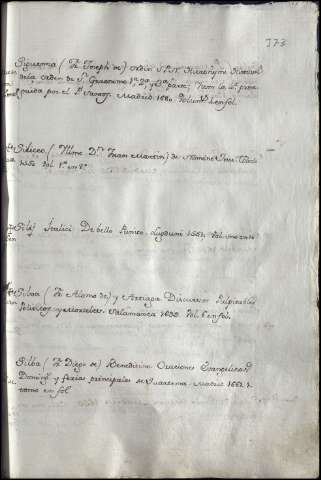 373
Siguenza (Fr. Joseph de) Orden S.P.N. Hieronymi Historia
de la orden de S. Geronimo 1ª 2ª y 3ª parte; Item la 4ª prose
guida por el P. Santos. Madrid 1680. Vol. en fol.
Siliceo (Illmo Dn. Juan Martin) de Nomine Iesu. Toledo
1550 Vol. 1º en 8º
Silij Italici De bello Punico. Lugduni 1551. Vol. uno en
Silva (Fr. Alamo de) y Arriaga Discursos Pulpitables
Politicos y Morales. Salamanca 16 Vol. en fol.
Silba (Fr. Diego de) Benedictin. Oraciones Evangelicas
Doming. y ferias principales de Quaresma. Madrid 1662. 1
tomo en fol